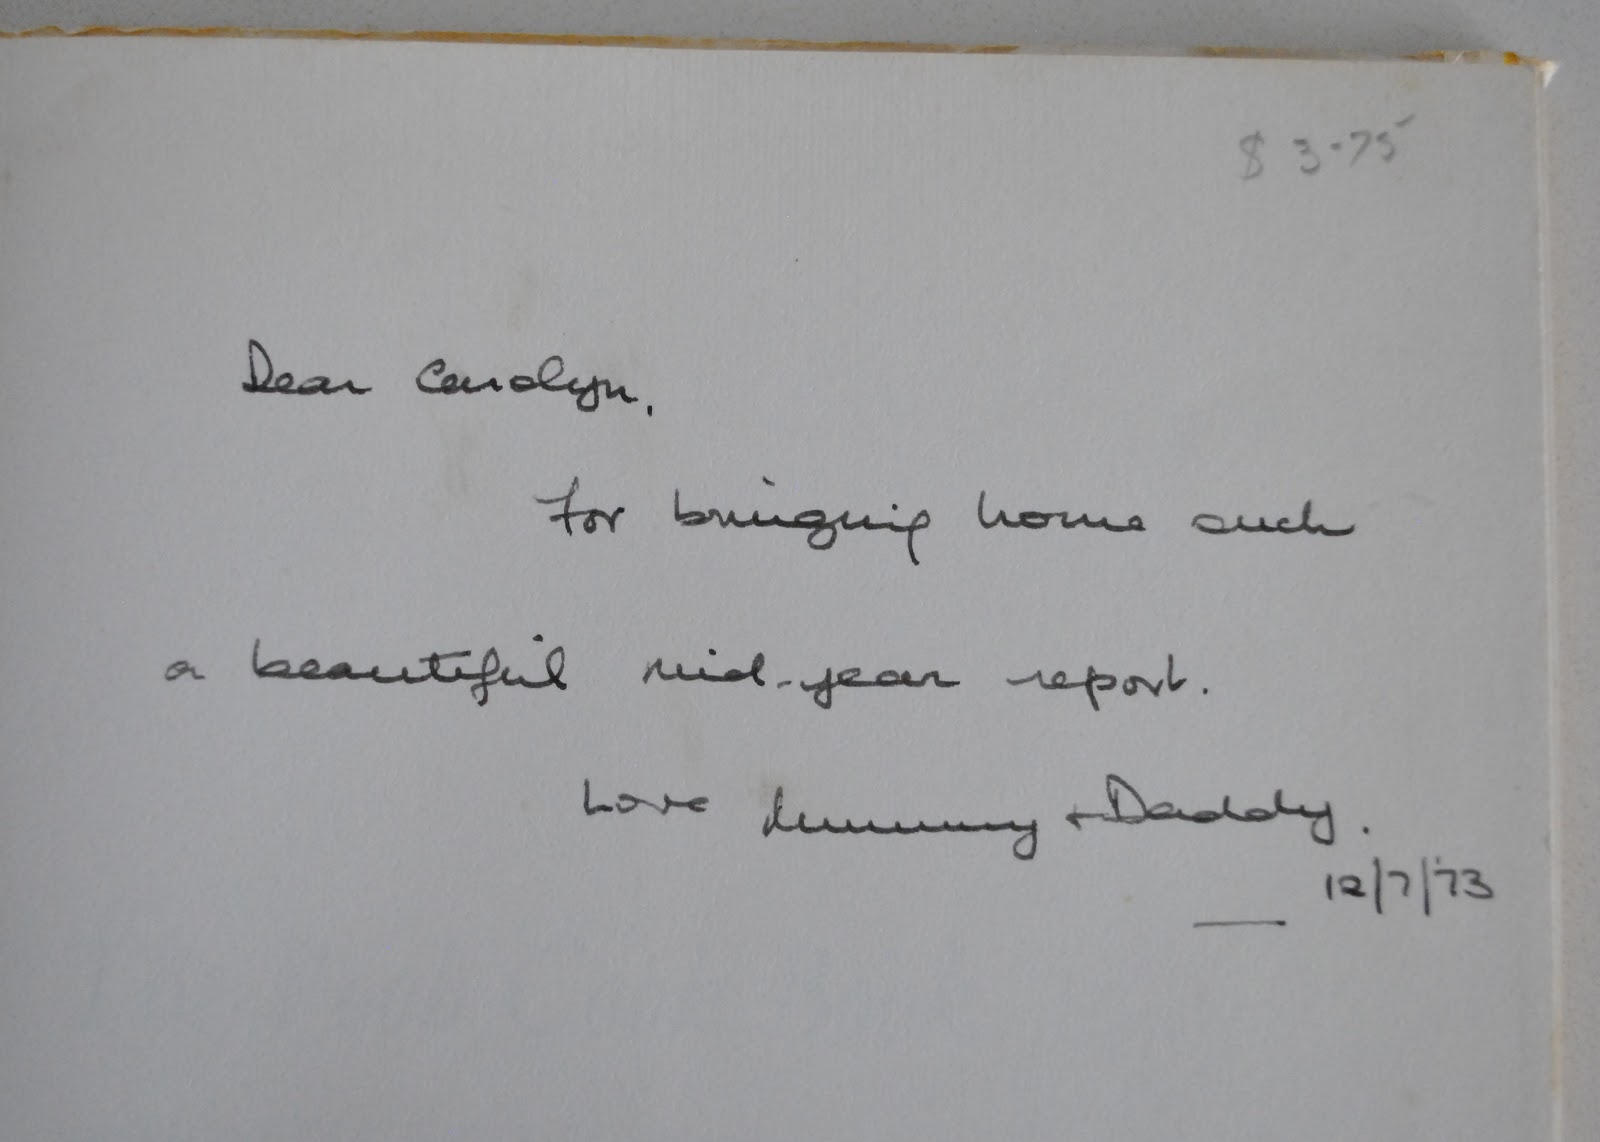 $ 3.75
Dear Carolyn,
For bringing home such
a beautiful mid-year report.
Love Mummy + Daddy.
12/7/73